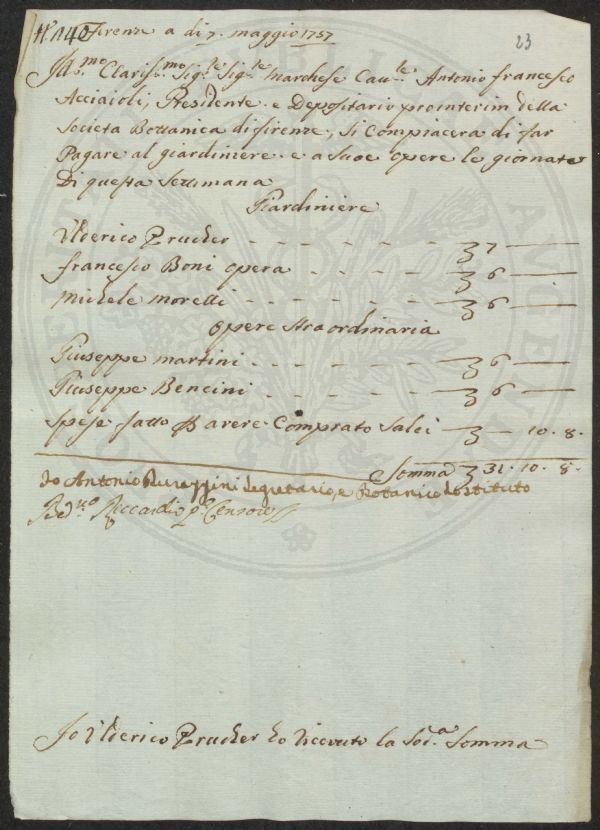 N.º 140 Firenze a dì 7. maggio 1757
23
Ill.mo Claris.mo Sig.le Sig.le Marchese Cau.le Antonio francesco
Acciaioli, Presidente e Depositario prointerim della
Societa Bottanica di firenze, si Compiacera di far
Pagare al giardiniere e a Suoe opere le giornate
Di questa Settimana
Giardiniere
Ulderico Prucher - - - - - - - 7 —
francesco Boni opera - - - - - 6 —
Michele moretti - - - - - - - 6 —
opere Straordinaria
Giuseppe martini - - - - - - 6 —
Giuseppe Bencini - - - - - - 6 —
Spese fatto p avere Comprato Salci — 10. 8.
Somma 31. 10. 8.
Io Antonio Segretario, e Botanico Sostituto
Riccardi p.º Censore
Io Ulderico Prucher ho Riceuuto la Sod.a Somma